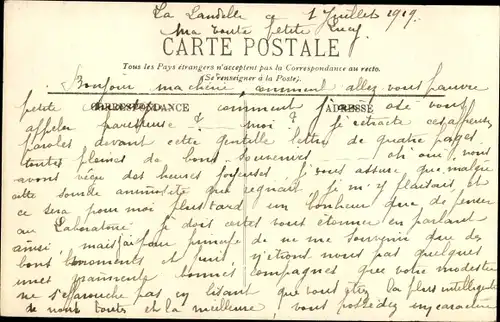 La Landelle ce 1 Juillet 1919.
Ma toute petite Lucy.
CARTE POSTALE
Tous les Pays étrangers n'acceptent pas la Correspondance au recto.
(Se renseigner à la Poste).
Bonjour ma chérie, comment allez vous pauvre
petite comment j'ai osé vous
CORRESPONDANCE ADRESSE
appeler paresseuse ? moi ? je rétracte ces affreuses
paroles devant cette gentille lettre de quatre pages
toutes pleines de bons souvenirs oh oui, nous
avons vécu des heures joyeuses. Je vous assure que malgré
cette sourde animosité que régnait je m'y plaisais, et
ce sera pour moi plus tard un bonheur que de penser
au Laboratoire. Je dois certes vous étonner en parlant
ainsi mais j'ai pour principe de ne me souvenir que des
bons moments et puis, n'étions nous pas quelques
unes vraiment bonnes compagnes que votre modestie
ne s'effarouche pas en lisant que vous étiez la plus intelligente
de nous toutes et la meilleure, vous possédez un caractère